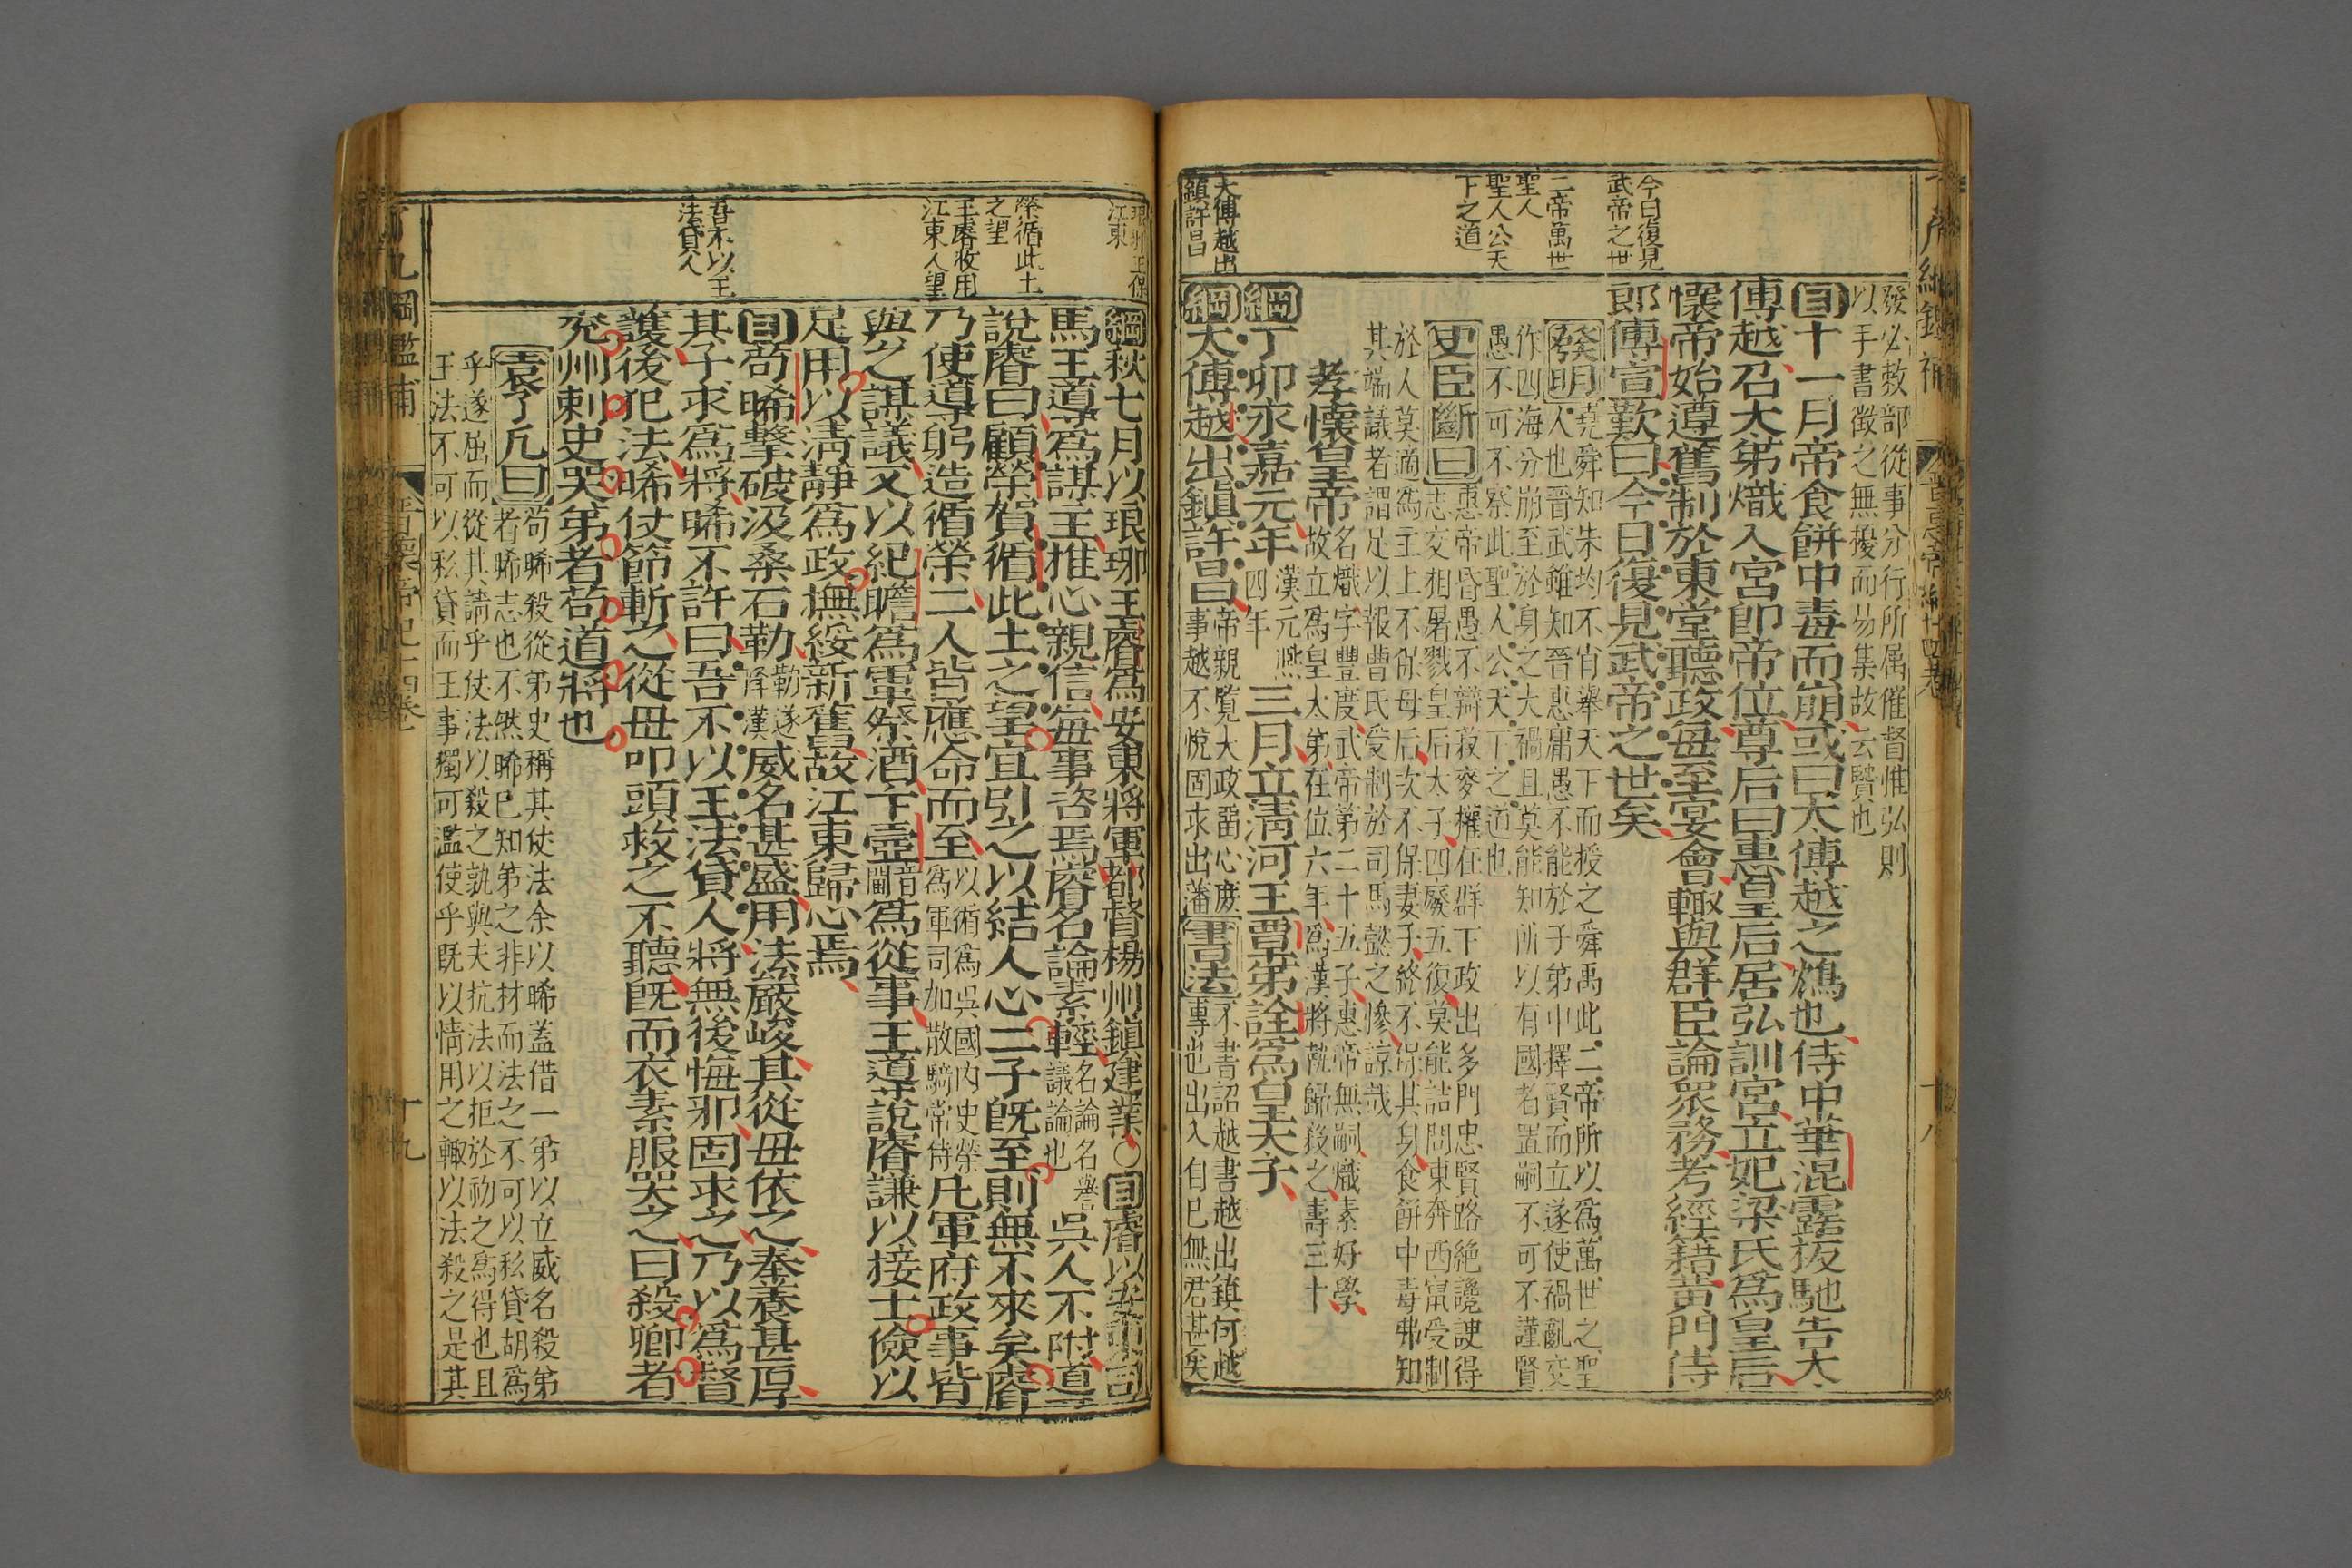 今日復見
武帝之世
二帝萬世
聖人
聖人公天
下之道
太傅越出
鎮許昌
發必敕部從事分行所属催督惟弘則
以手書徵之無擾而易集故云賢也
目十一月帝食餅中毒而崩或曰太傅越之鴆也侍中華混露板馳告太
傅越召太弟熾入宮即帝位尊后曰惠皇后居弘訓宮立妃梁氏為皇后
懷帝始遵舊制於東堂聽政每至宴會輙與群臣論眾務考經籍黃門侍
郎傅宣歎曰今日復見武帝之世矣
堯舜知朱均不肖舉天下而授之舜禹此二帝所以為萬世之聖
人也晉武雖知晉惠庸愚不能於子弟中擇賢而立遂使禍亂交
作四海分崩至於身之大禍且莫能知所以有國者置嗣不可不謹賢
愚不可不察此聖人公天下之道也
史臣斷曰惠帝昏愚不辯菽麥權在群下政出多門忠賢路絕讒諛得
志交相屠戮皇后太子四廢五復莫能詰問東奔西竄受制
於人莫適為主上不保母后次不保妻子終不保其身食餅中毒弗知
其端議者謂足以報曹氏受制於司馬懿之慘諒哉
孝懷皇帝名熾字豐度武帝第二十五子惠帝無嗣熾素好學
故立為皇太弟在位六年為漢將執歸殺之壽三十
綱丁卯永嘉元年漢元熙四年三月立淸河王覃弟詮為皇太子
綱太傅越出鎮許昌帝親覧大政畱心庶
事越不悅固求出藩書法不書詔越書越出鎮何越
專也出入自巳無君甚矣
晉惠帝紀十四卷
琅琊王保
江東
榮循此土
之望
王睿收用
江東人望
吾不以王
法貸人
綱秋七月以琅琊王睿為安東將軍都督楊州鎮建業○目睿以安東司
馬王導為謀主推心親信每事咨焉睿名論素輕名論名譽議論也吳人不附導
說睿曰顧榮賀循此土之望宜引之以結人心二子旣至則無不來矣睿
乃使導躬造循榮二人皆應命而至以循為吳國內史榮
為軍司加散騎常侍凡軍府政事皆
與之謀議又以紀瞻為軍祭酒卞壼音閫為從事王導說睿謙以接士儉以
足用以淸靜為政撫綏新舊故江東歸心焉
目苟晞擊破汲桑石勒勒遂降漢威名甚盛用法嚴峻其從母依之奉養甚厚
其子求為將晞不許曰吾不以王法貸人將無後悔邪固求之乃以為督
護後犯法晞仗節斬之從母叩頭救之不聽旣而衣素服哭之曰殺卿者
兖州刺史哭弟者苟道將也
袁了凡曰苟晞殺從弟史稱其仗法余以晞蓋借一弟以立威名殺弟
若晞志也不然晞巳知弟之非材而法之不可以私貸胡為
乎遂屈而從其請乎仗法以殺之孰與夫抗法以拒於初之為得也且
王法不可以私貸而王事獨可濫使乎旣以情用之輙以法殺之是其
晉懷帝紀十四卷
十九